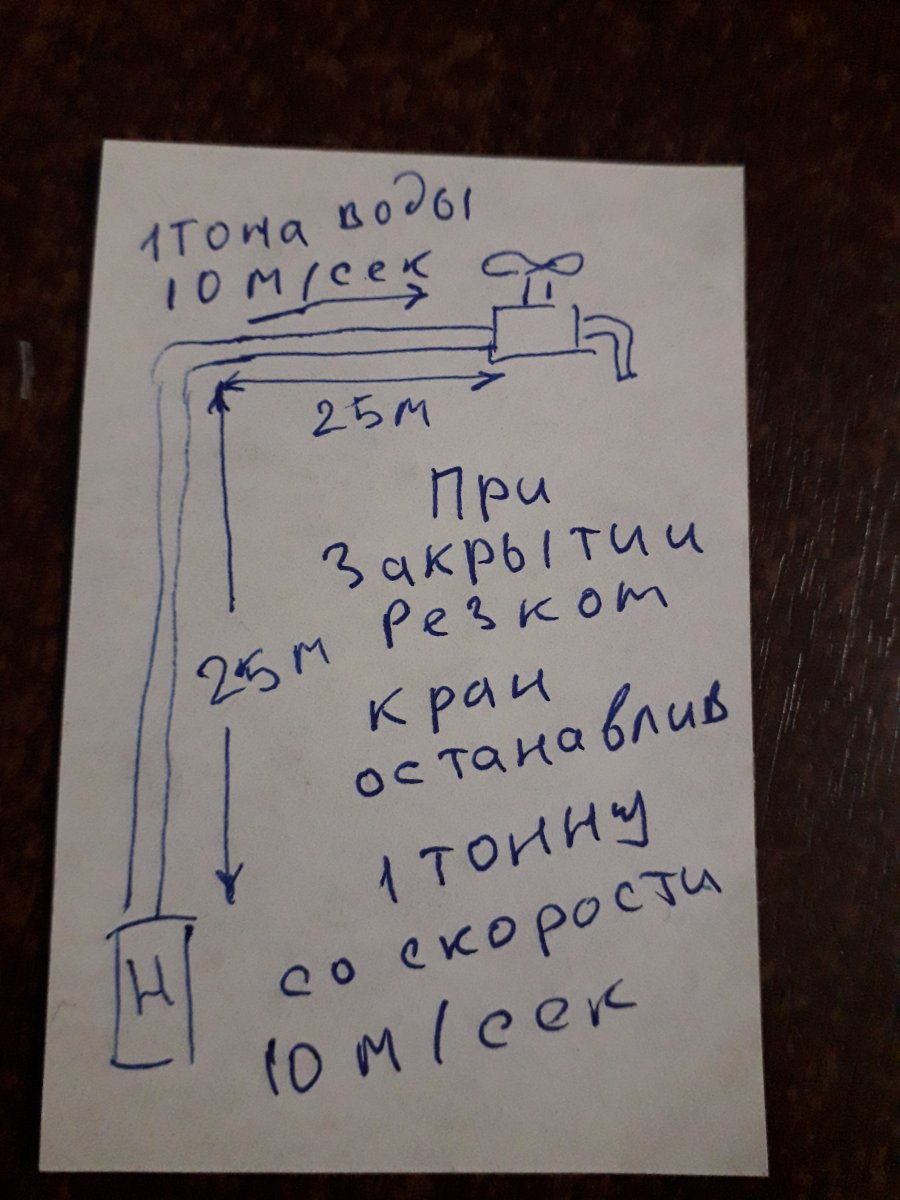 1 Тона воды
10 м/сек
25 м
При
Закрытии
Резком
25 м
кран
останавлив
1 тонну
со скорости
Н
10 м/сек